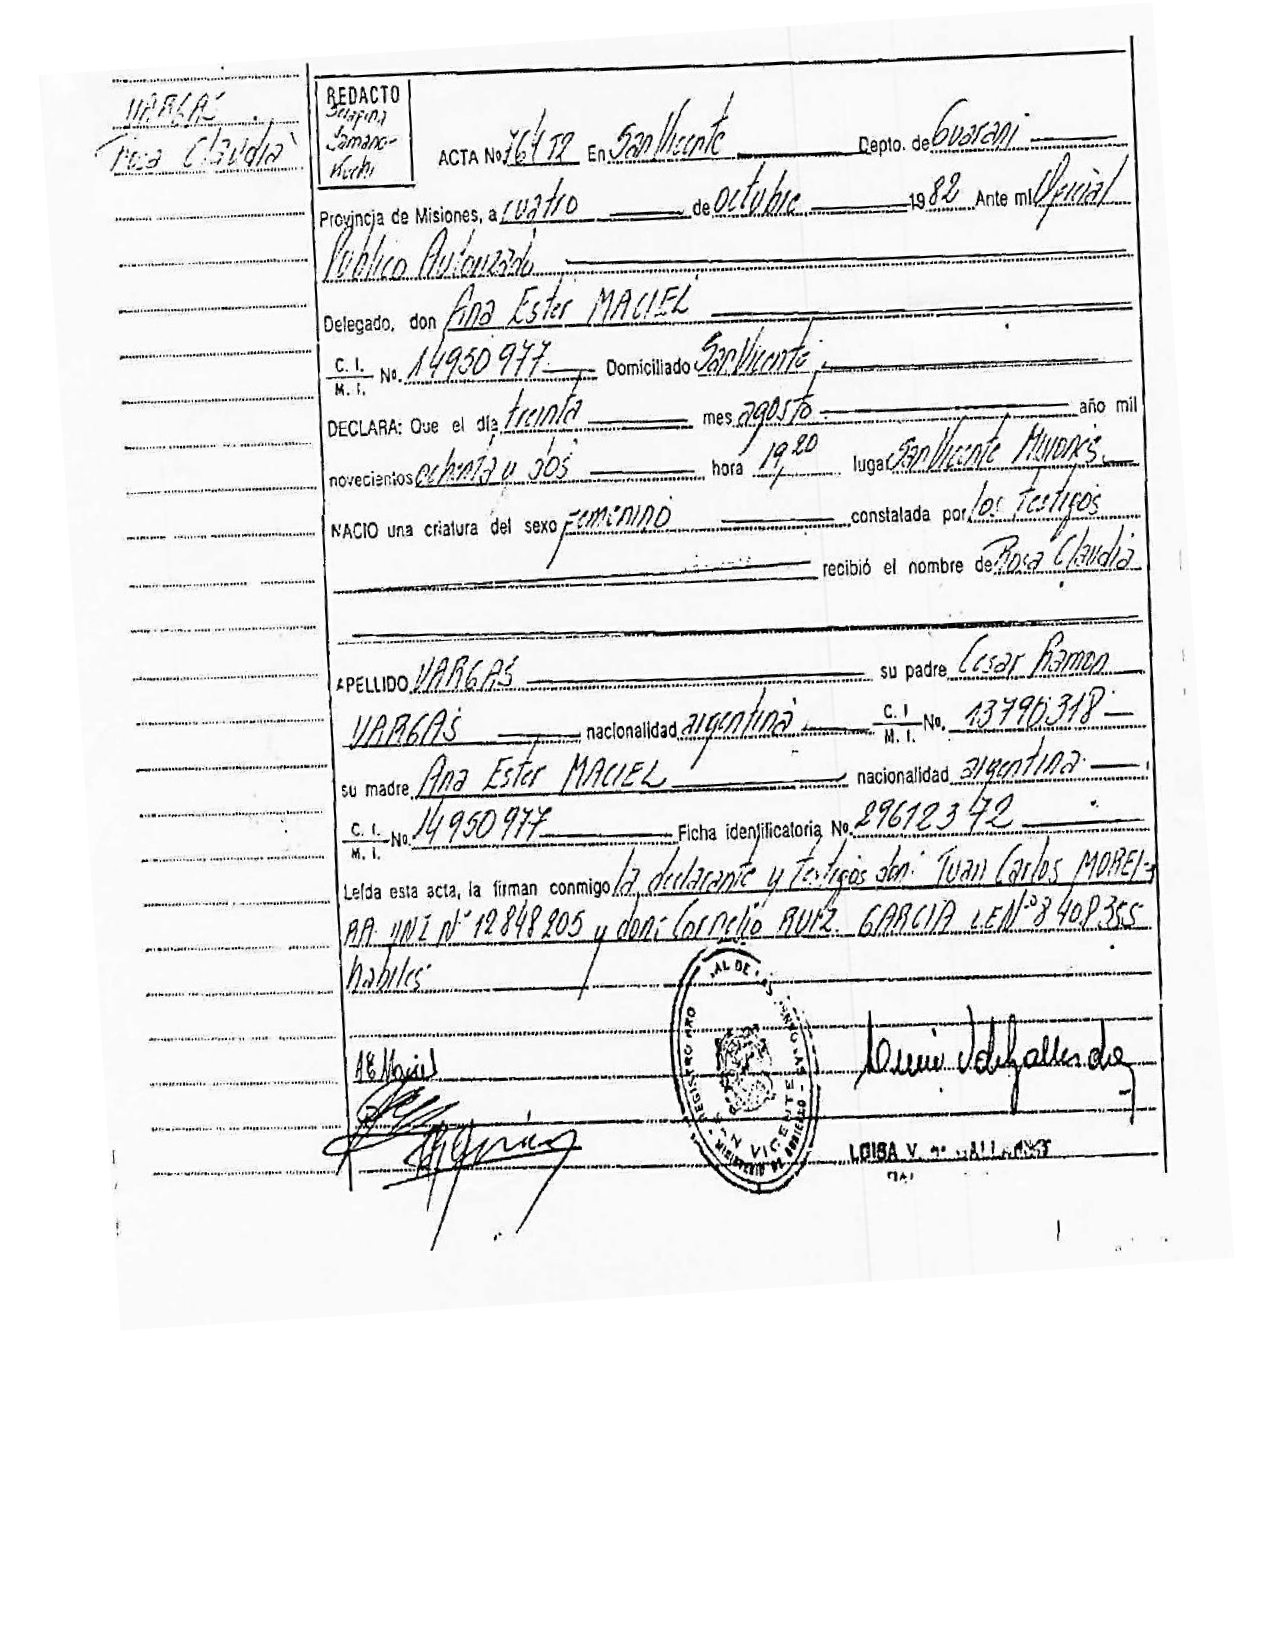 VARGAS
Rosa Claudia
REDACTO
Serafina
ACTA No. En San Vicente Depto. de Guarani
Provincia de Misiones, a cuatro de octubre 1982 Ante mi Oficial
Publico Autorizado
Delegado, don Ana Ester MACIEL
C. I. M. I. No. 14950977 Domiciliado San Vicente
DECLARA: Que el día treinta mes agosto año mil
novecientos ochenta y dos hora 19,20 lugar San Vicente Misiones
NACIO una criatura del sexo Femenino constalada por los testigos
recibió el nombre de Rosa Claudia
APELLIDO VARGAS su padre Cesar Ramon
VARGAS nacionalidad argentina C. I M. I. No. 13790318
su madre Ana Ester MACIEL nacionalidad argentina
C. I. M. I. No. 14950977 Ficha identificatoria No. 29612372
Leída esta acta, la firman conmigo la declarante y testigos don: Juan Carlos MOREI-
RA DNI Nº 12848205 y don: Cornelio RUIZ GARCIA LE Nº 8408355
habiles
AE Maciel
SAN VICENTE
LUISA V.